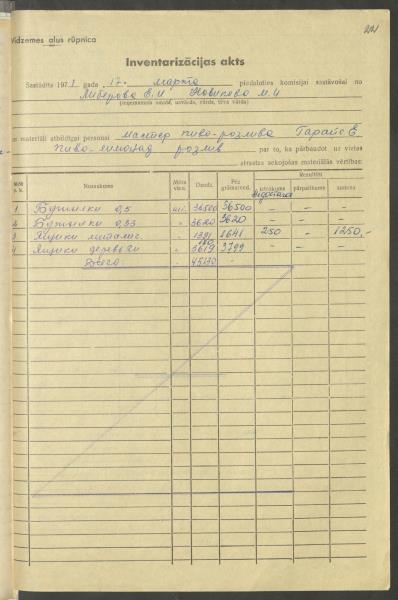 221
Vidzemes alus rūpnīca
Inventarizācijas akts
Sastādīts 1971 gada 17. марта piedaloties komisijai sastāvošai no
Либерова Е.И Новикова М.И
materiāli atbildīgai personai мастер пиво-розлива Гарайс Е.
пиво-лимонад розлив par to, ka pārbaudot uz vietas
atrastas sekojošas materiālās vērtības:
Nosaukums Mēra vien. Daudz. Pēc grāmatved. Rezultāti
iztrūkums pārpalikums summa
недостача
1 Бутылки 0,5 шт. 36500 36500 - -
2 Бутылки 0,33 " 3620 3620 - -
3 Ящики металлич. " 1391 1641 250 - 1250,-
180
4 Ящики деревян " 3619 3799 - -
Всего 45130 -